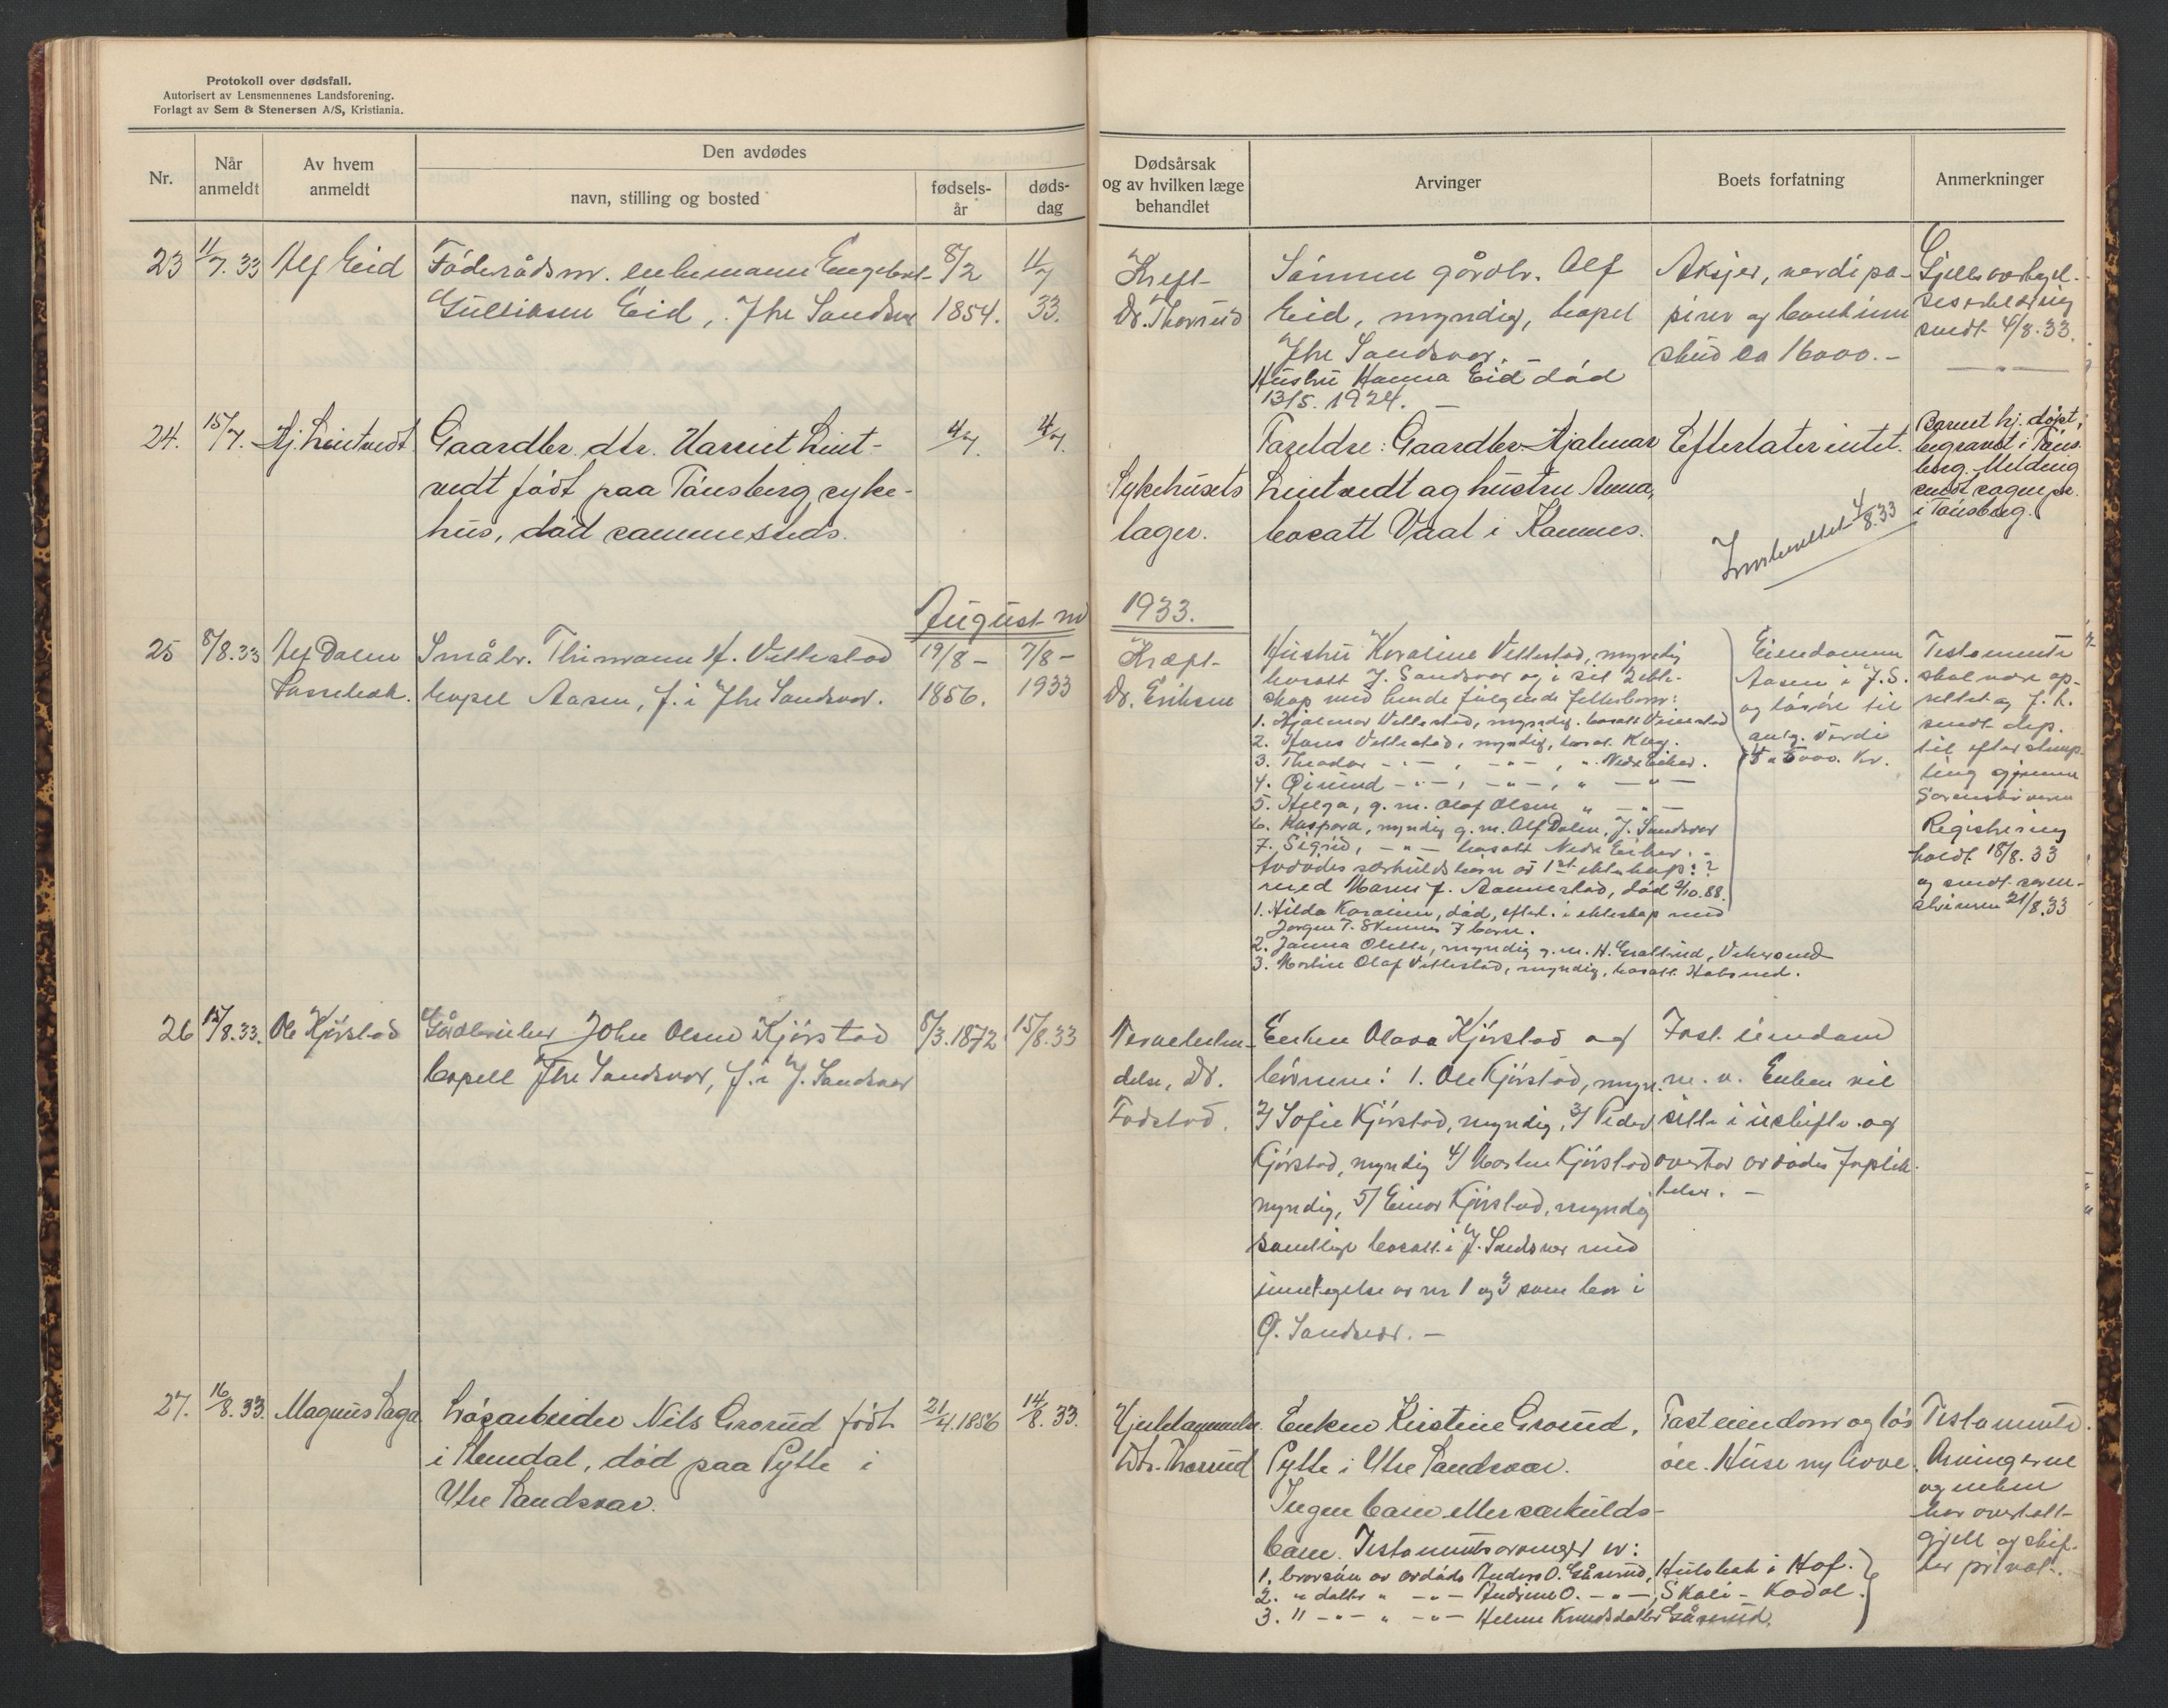 Protokoll over dødsfall.
Autorisert av Lensmennenes Landsforening.
Forlagt av Sem & Stenersen A/S, Kristiania.
Nr.
Når anmeldt
Av hvem anmeldt
Den avdødes
navn, stilling og bosted
fødsels-år
døds-dag
Dødsårsak og av hvilken læge behandlet
Arvinger
Boets forfatning
Anmerkninger
23
11/7.33
Alf Eid
Föderådsm. enkemann Engebret
Gulliksen Eid, Ytre Sandsvær
8/2
1854.
11/7
33.
Kreft
Dr. Thorrud
Sönnen gårdbr. Alf
Eid, myndig, bopel
Ytre Sandsvær. –
Hustru Hanna Eid död
13/5. 1924. –
Aksjer, verdipa-
pirer og bankinn
skud ca 16000.–
sendt 4/8.33.
24.
15/7.
Hj. Lintvedt
Gaardbr. dtr. Harriet Lint-
vedt födt paa Tönsberg syke-
hus, död sammesteds.
4/7.
4/7.
Sykehusets
læger.
Foreldre: Gaardbr. Hjalmar
Lintvedt og hustru Anna,
bosatt Vaal i Ramnes.
Efterlater intet.
Barnet hj. döpt,
begravet i Töns-
berg. Melding
sendt sognepr.
i Tönsberg.
Innberettet 4/8.33
August md
1933.
25
8/8.33
Alf Dalen
Småbr. Thimann H. Vettestad
bopel Aasen, f. i Ytre Sandsvær.
19/8 –
1856.
7/8 –
1933
Kræft
Dr. Eriksen
Hustru Karoline Vettestad, myndig
bosatt Y. Sandsvær og i sit 2 ekte-
skap med hende fölgende fellesbarn:
1. Hjalmar Vettestad, myndig, bosatt
2. Hans Vettestad, myndig, bosat. Kbg.
3. Theodor – " – , – " – , " Nedre Eiker.
4. Öivind – " – , – " – , " – " –
5. Helga, g. m. Olaf Olsen " – " –
6. Kaspara, myndig g. m. Alf Dalen, Y. Sandsvær
7. Sigrid, – " – bosatt Nedre Eiker. –
Avdödes særkuldsbarn av 1st ekteskap: ?
med Maren f. Aannestad, död 2/10.88.
1. Hilda Karoline, död, efterl. i ekteskap med
Jörgen T. Skinnes 7 barn.
2. Janna Olette, myndig g. m. H.
3. Martin Olaf Vettestad, myndig, bosatt
Eiendommen
Aasen i Y. S.
og lösöre til
antg. verdi
4 a 5000. kr.
Testamente
skal være op-
rettet og f. h.
sendt dep.
til efterstemp-
ling gjennem
Sorenskriveren
Registrering
holdt 18/8.33
og sendt soren-
skriveren 21/8.33
26
15/8.33.
Ole Kjörstad
Gårdbruker John Olsen Kjörstad
bopell Ytre Sandsvær, f. i Y. Sandsvær
8/3.1872
15/8.33
delse, Dr.
Fodstad.
Enken Olava Kjörstad og
börnene: 1. Ole Kjörstad, mynd.
2/ Sofie Kjörstad, myndig, 3/ Peder
Kjörstad, myndig 4/ Martin Kjörstad
myndig, 5/ Einar Kjörstad, myndig
samtlige bosatt i Y. Sandsvær med
unntagelse av nr 1 og 3 som bor i
Ö. Sandsvær. –
Fast eiendom
m. v. Enken vil
sitte i uskifte og
overtar avdödes forplik-
telser. –
27.
16/8.33.
Magnus Saga
Lösarbeider Nils Grorud födt
i Stendal, död paa Pytte i
Ytre Sandsvær.
21/4.1856
14/8.33.
Dr. Thorrud
Enken Kirstine Grorud,
Pytte i Ytre Sandsvær.
Ingen barn eller særkulds-
barn. Testamentsarvinger er:
1. brorsön av avdöde Anders O. Gåserud,
2. " datter " – " – Andrine O. – " –, Skoli – Kodal.
3. " – " – " – " – Helene Knudsdatter Gåserud.
Fast eiendom og lös
öre. Huse ny love.
Hulebak i Hof.
Testamente.
Arvingerne
og enken
har overtatt
gjell og skif-
ter privat.